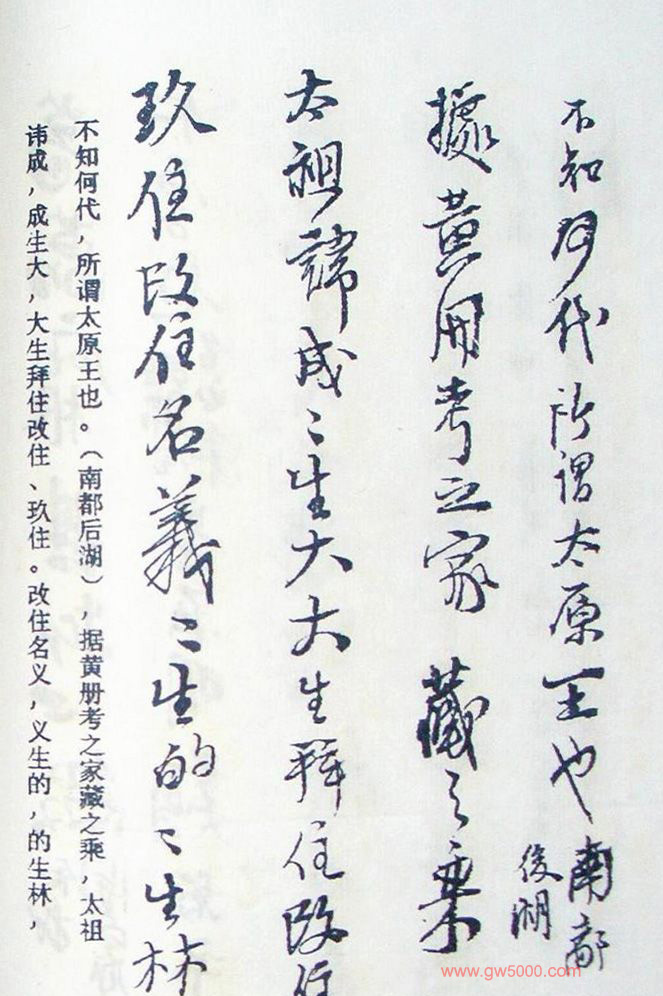 不知何代所謂太原王也南都
後湖
據黄冊考之家藏之乗
太祖諱成〻生大大生拜住改住
玖住改住名義〻生的〻生林
不知何代，所谓太原王也。（南都后湖），据黄册考之家藏之乘，太祖
讳成，成生大，大生拜住改住、玖住。改住名义，义生的，的生林，
www.gw5000.com